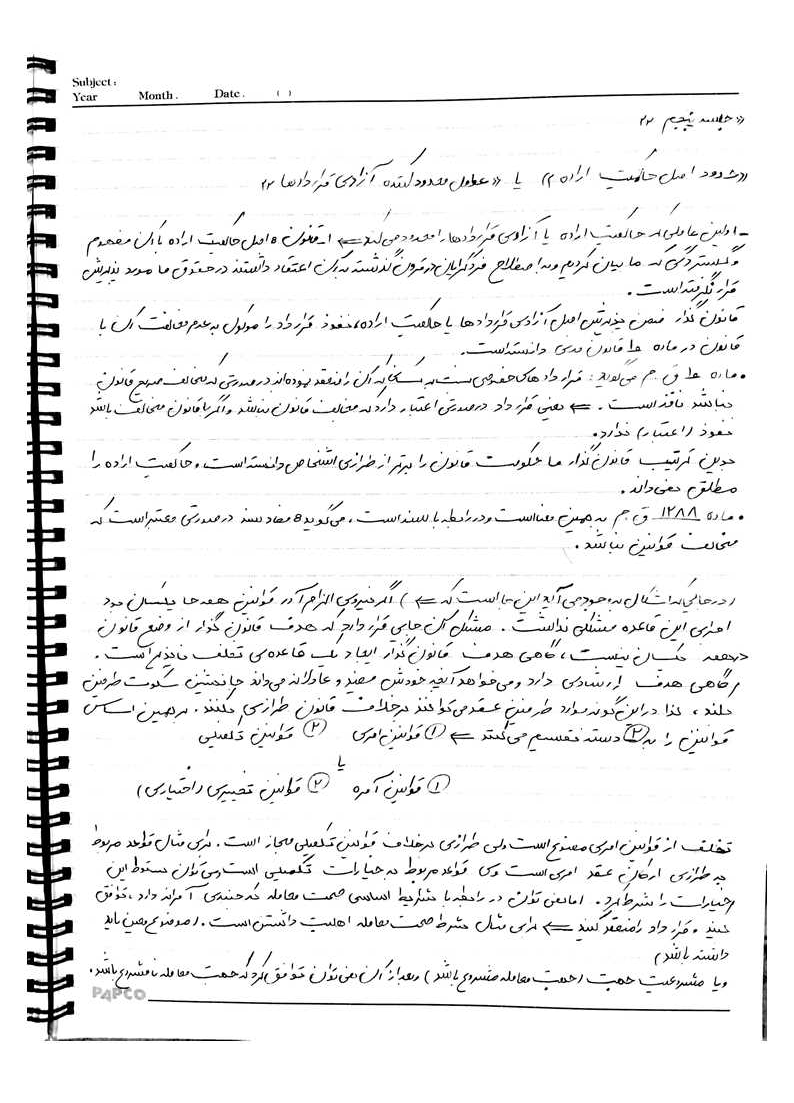 Subject:
Year Month. Date. ( )
« جلسه پنجم »
«حدود اصل حاکمیت اراده» یا «عوامل محدود کننده آزادی قراردادها»
- اولین عاملی که حاکمیت اراده یا آزادی قراردادها را محدود می‌کند ⇐ ۱- قانون: اصل حاکمیت اراده با آن مفهوم
و گستردگی که ما بیان کردیم و به اصطلاح فردگرایان در قرون گذشته به آن اعتقاد داشتند در حقوق ما مورد پذیرش
قرار نگرفته است.
قانون گذار ضمن پذیرش اصل آزادی قراردادها یا حاکمیت اراده، نفوذ قرارداد را موکول به عدم مخالفت آن با
قانون در ماده ۱۰ قانون مدنی دانسته است.
• ماده ۱۰ ق.م می‌گوید: قراردادهای خصوصی نسبت به کسانی که آن را منعقد نموده‌اند در صورتی که مخالف صریح قانون
نباشد نافذ است. ⇐ یعنی قرارداد در صورتی اعتبار دارد که مخالف قانون نباشد و اگر با قانون مخالف باشد
نفوذ (اعتبار) ندارد.
بدین ترتیب قانون گذار ما حکومت قانون را برتر از طرازی اشخاص دانسته است، و حاکمیت اراده را
مطلق نمی‌داند.
• ماده ۱۲۸۸ ق.م به همین معناست و در رابطه با سند است، می‌گوید: مفاد سند در صورتی معتبر است که
مخالف قوانین نباشد.
(در حالی که اشکال به وجود می‌آید این جا است که ⇐) اگر نیروی الزام آور قوانین همه جا یکسان بود
اجرای این قاعده مشکلی نداشت. مشکل آن جایی قرار دارد که هدف قانون گذار از وضع قانون
در همه یکسان نیست، گاهی هدف قانون گذار ایجاد یک قاعده‌ی تخلف ناپذیر است.
و گاهی هدف ارشادی دارد و می‌خواهد آنچه خودش مفید و عادلانه می‌داند جانشین سکوت طرفین
کند، لذا در این گونه موارد طرفین عقد می‌توانند برخلاف قانون طرازی کنند. بر همین اساس
قوانین را به ② دسته تقسیم می‌کنند ⇐ ① قوانین امری ② قوانین تکمیلی
یا
① قوانین آمره ② قوانین تخییری (اختیاری)
تخلف از قوانین امری ممنوع است ولی طرازی برخلاف قوانین تکمیلی مجاز است. برای مثال قواعد مربوط
به طرازی ارکان عقد امری است ولی قواعد مربوط به خیارات تکمیلی است و می‌توان سقوط این
خیارات را شرط کرد. اما نمی‌توان در رابطه با شرایط اساسی صحت معامله که جنبه‌ی آمرانه دارد، توافق
کنید و قرارداد را منعقد کنید ⇐ برای مثال شرط صحت معامله اهلیت داشتن است. (موضوع معین باید
داشته باشد)
و یا مشروعیت جهت (جهت معامله مشروع باشد) و بعد از آن نمی‌توان توافق کرد که جهت معامله نامشروع باشد.
PAPCO